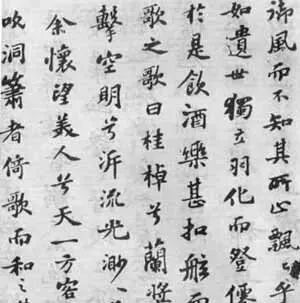 御風而不知其所止飄〻乎
如遺世獨立羽化而登僊
於是飲酒樂甚扣舷而
歌之歌曰桂棹兮蘭槳
擊空明兮泝流光渺〻
余懷望美人兮天一方客
吹洞簫者倚歌而和之